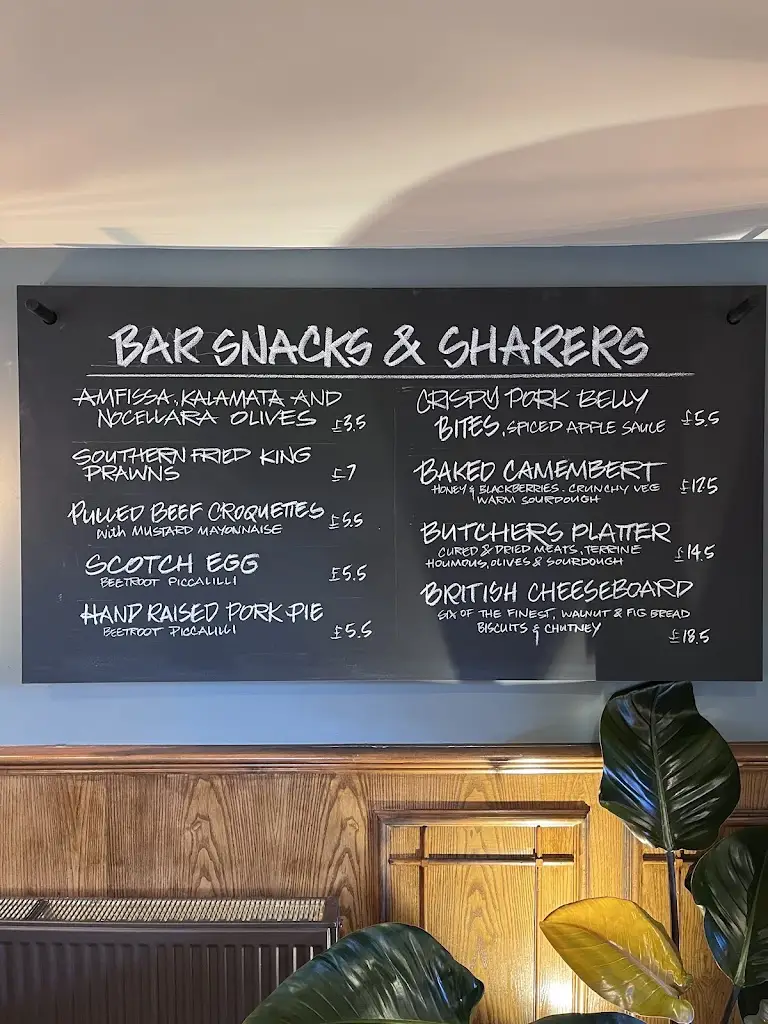 BAR SNACKS & SHARERS
AMFISSA, KALAMATA AND
NOCELLARA OLIVES £3.5
SOUTHERN FRIED KING
PRAWNS £7
PULLED BEEF CROQUETTES £5.5
With MUSTARD MAYONNAISE
SCOTCH EGG
BEETROOT PICCALILLI £5.5
HAND RAISED PORK PIE
BEETROOT PICCALILLI £5.5
CRISPY PORK BELLY
BITES, SPICED APPLE SAUCE £5.5
BAKED CAMEMBERT
HONEY & BLACKBERRIES. CRUNCHY VEG £12.5
WARM SOURDOUGH
BUTCHERS PLATTER
CURED & DRIED MEATS, TERRINE £14.5
HOUMOUS, OLIVES & SOURDOUGH
BRITISH CHEESEBOARD
SIX OF THE FINEST, WALNUT & FIG BREAD
BISCUITS & CHUTNEY £18.5